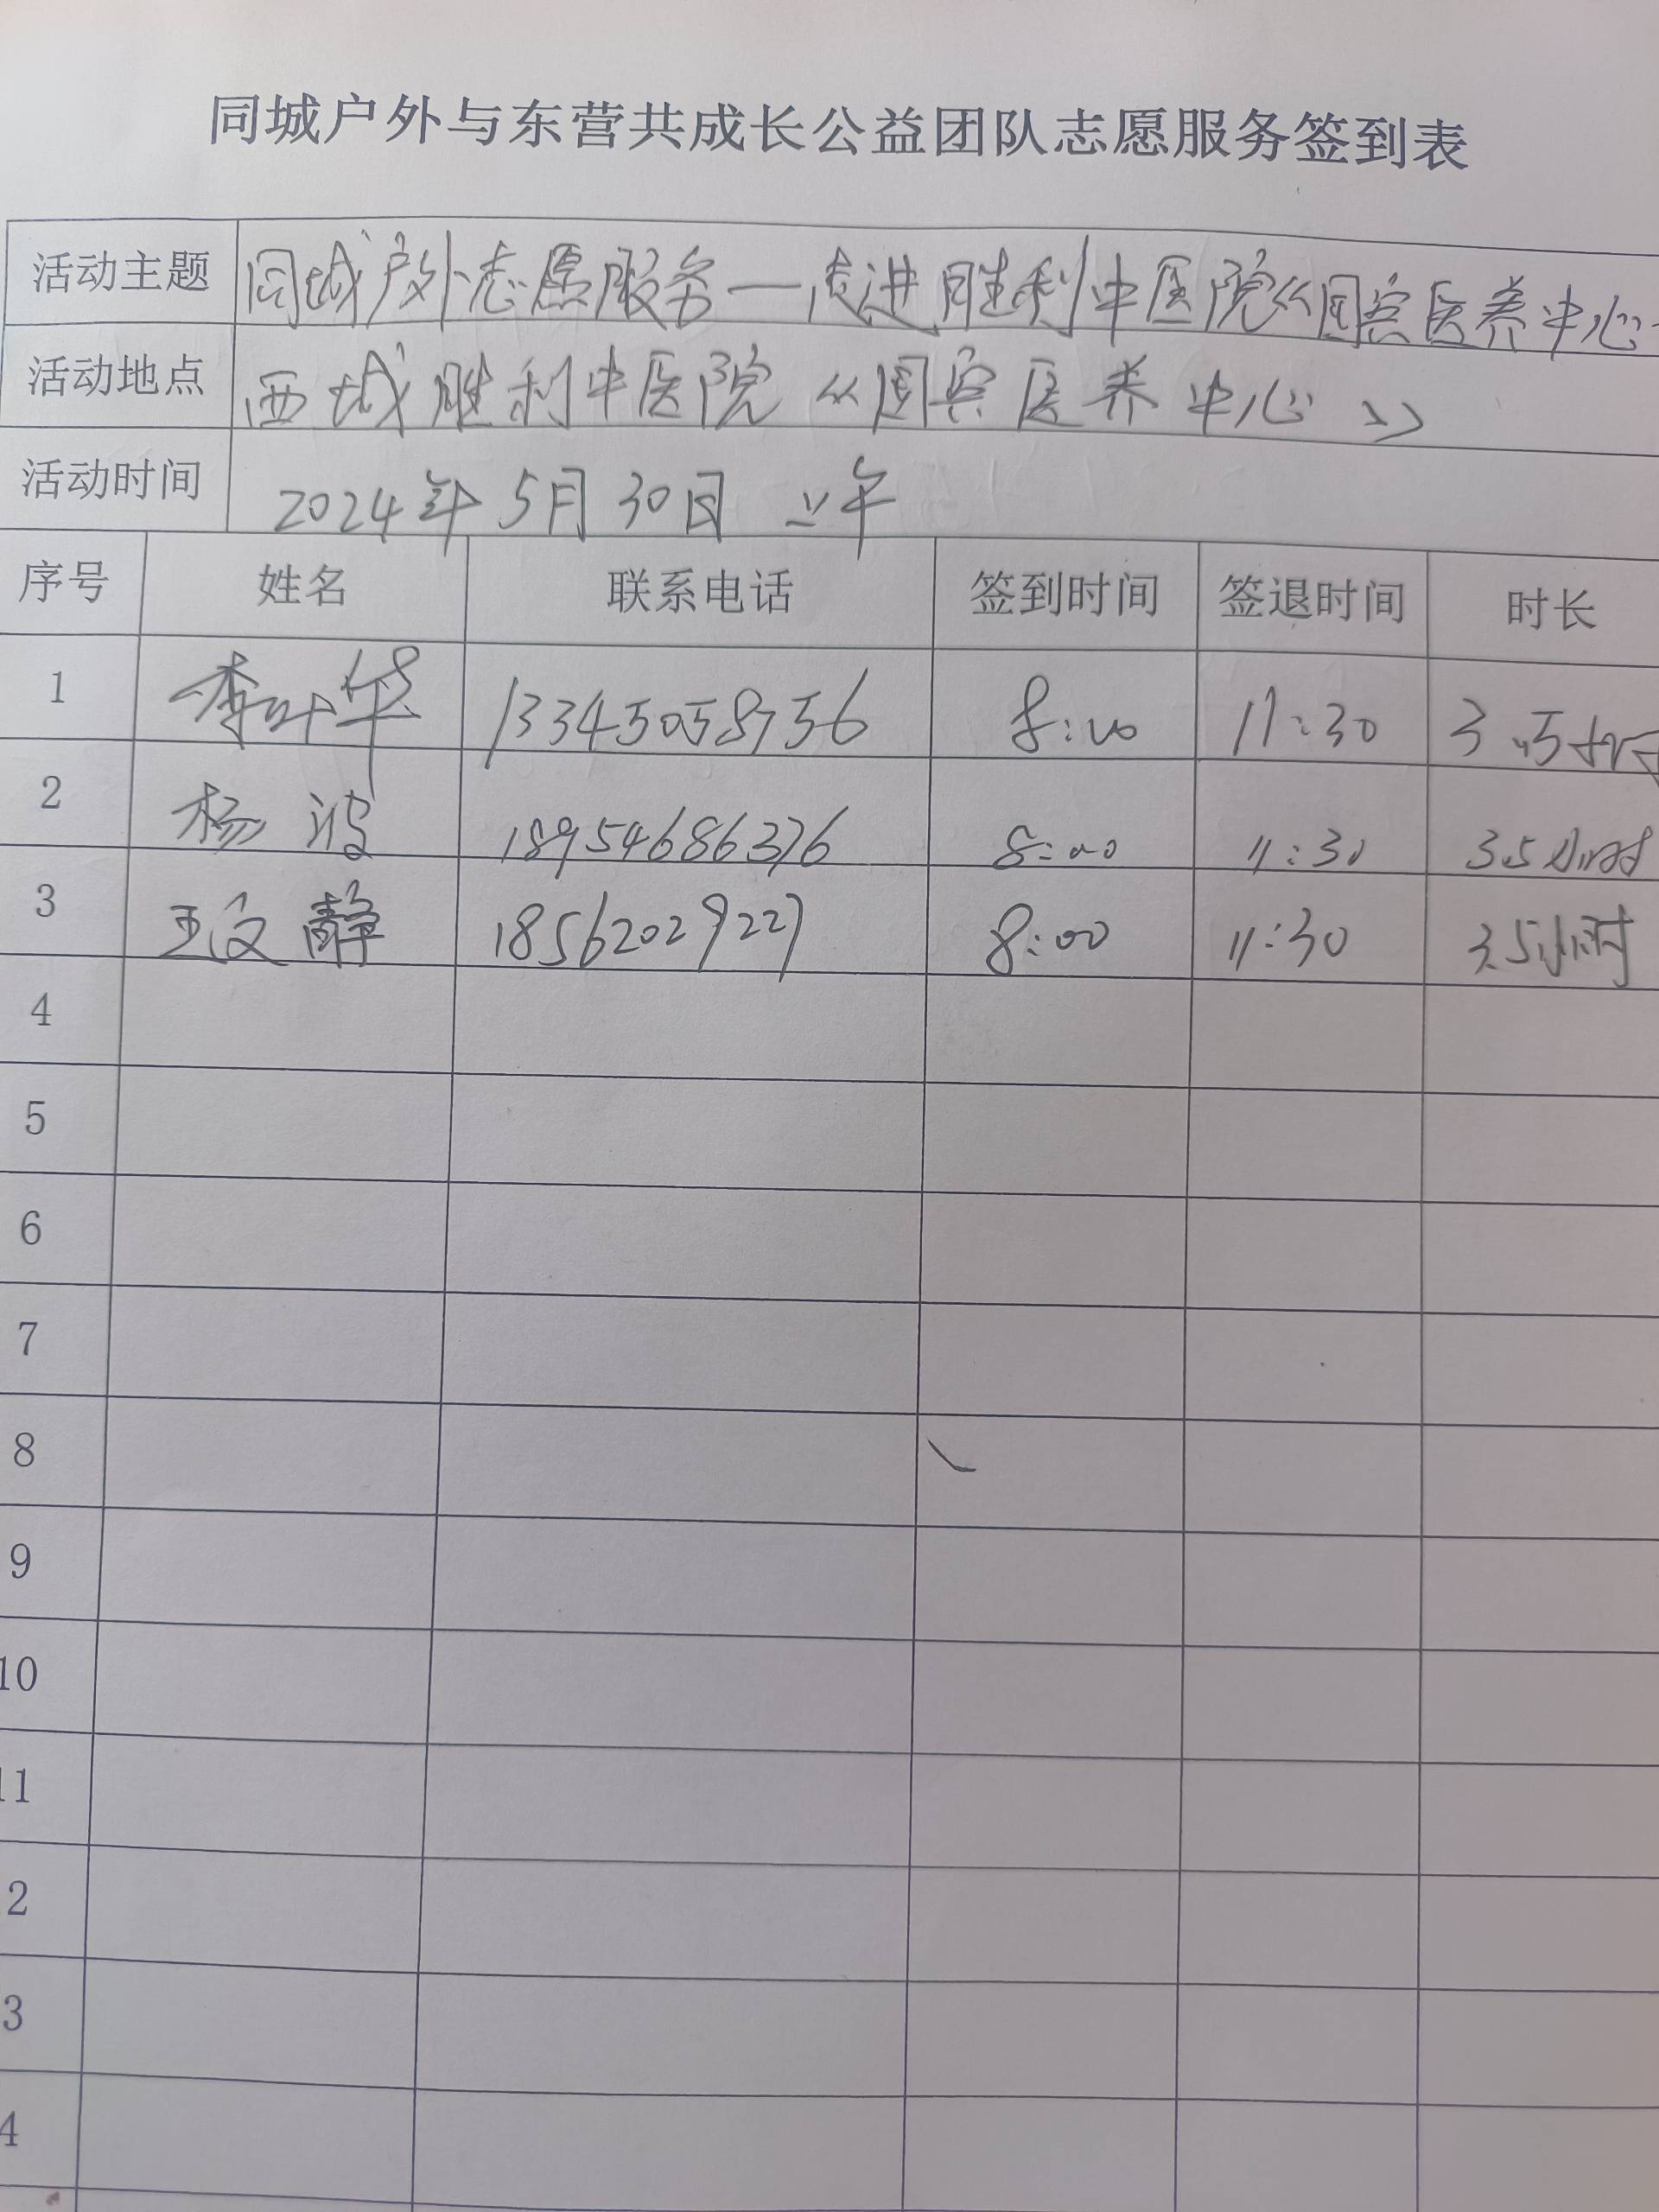 同城户外与东营共成长公益团队志愿服务签到表
活动主题 同城户外志愿服务——走进胜利中医院《国宾医养中心
活动地点 西城胜利中医院《国宾医养中心》
活动时间 2024年5月30日 上午
序号 姓名 联系电话 签到时间 签退时间 时长
1 李叶华 13345058756 8:00 11:30 3.5小时
2 杨波 18954686376 8:00 11:30 3.5小时
3 王文静 18562029227 8:00 11:30 3.5小时
4
5
6
7
8
9
10
11
2
3
4